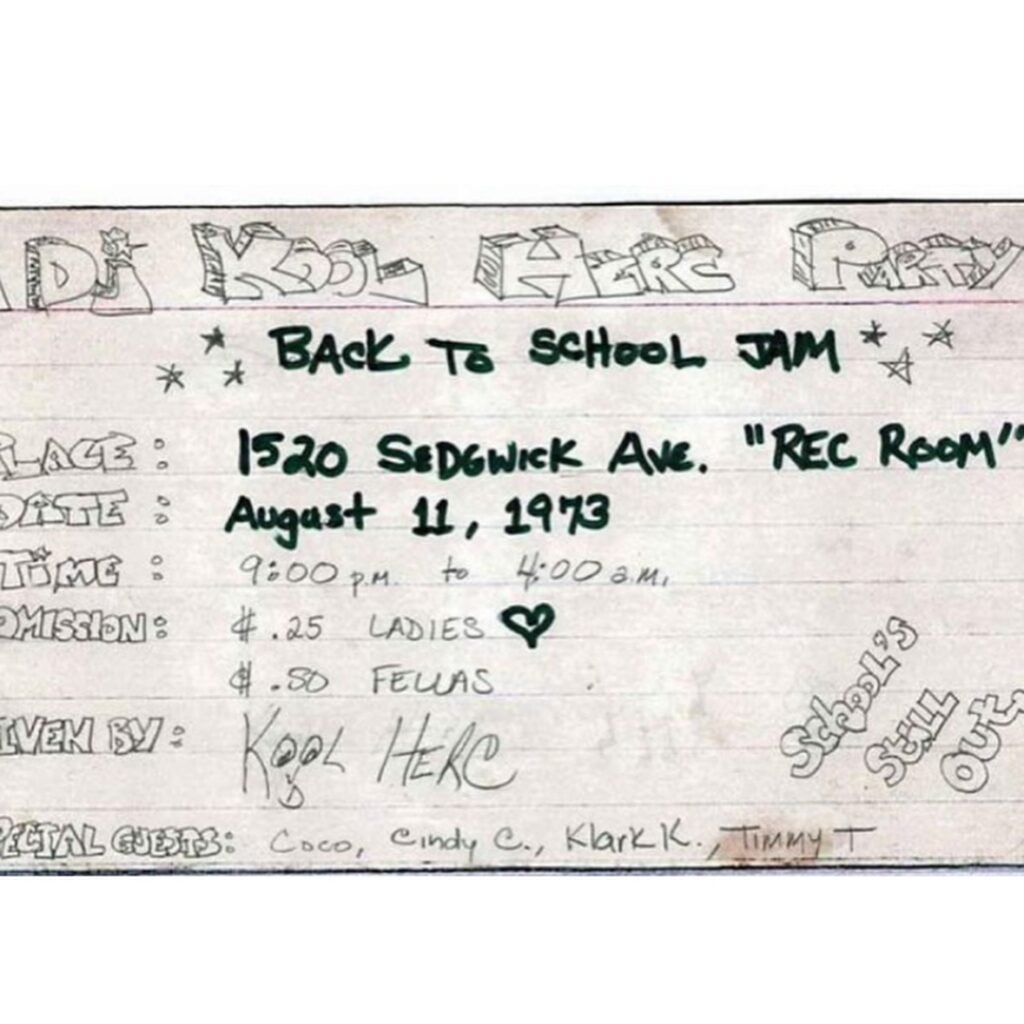 DJ KOOL HERC PARTY
BACK TO SCHOOL JAM
PLACE : 1520 SEDGWICK AVE. "REC ROOM"
DATE : August 11, 1973
TIME : 9:00 p.m. to 4:00 a.m.
DMISSION : $ .25 LADIES
$ .50 FELLAS
IVEN BY : KOOL HERC
PECIAL GUESTS : Coco, Cindy C., Klark K., TIMMY T
School's
Still
Out.